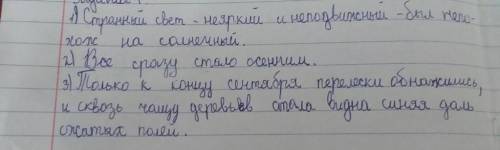 1) Странный свет - неяркий и неподвижный - был непо-
хож на солнечный.
2) Все сразу стало осенним.
3) Только к концу сентября перелески обнажились,
и сквозь чащу деревьев стала видна синяя даль
сжатых полей.